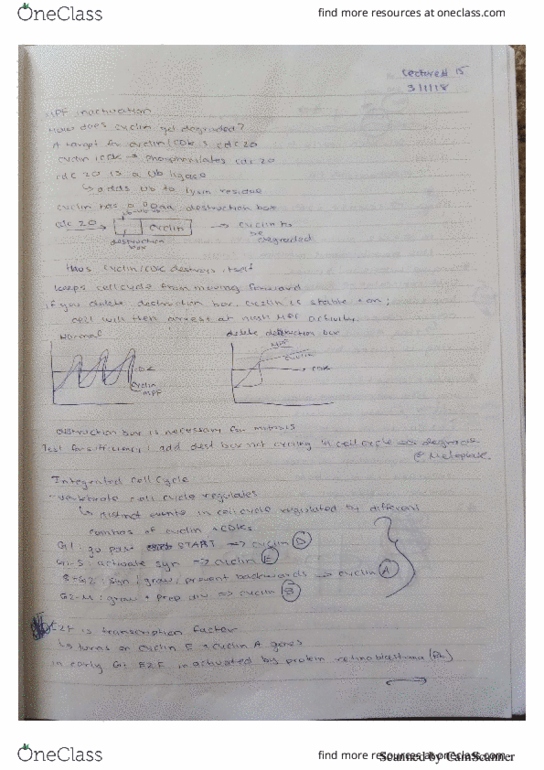 OneClass
find more resources at oneclass.com
Lecture# 15
3/1/18
MPF inactivation
How does cyclin get degraded?
A target for cyclin/CDK is cdc20
cyclin/CDK → phosphorylates cdc20
cdc20 is a Ub ligase
↳ adds Ub to lysin residue
cyclin has a destruction box
cdc20 → cyclin → cyclin to be degraded
destruction box
thus cyclin/CDK destroys itself
keeps cell cycle from moving forward
if you delete destruction box, cyclin is stable + on;
cell will then arrest at high MPF activity.
Normal
delete destruction box
CDK
cyclin
MPF
MPF
cyclin
CDK
destruction box is necessary for mitosis
Test for sufficiency: add dest box not in cell cycle degrade
@ Metaphase.
Integrated Cell Cycle
- vertebrate cell cycle regulates
↳ distinct events in cell cycle regulated by different
combos of cyclin + CDKs
G1: go past START → cyclin D
G1-S: activate syn → cyclin E
S-G2: syn; grow; prevent backwards → cyclin A
G2-M: grow + prep div → cyclin B
E2F is transcription factor
↳ turns on cyclin E + cyclin A genes
in early G1 E2F inactivated by protein retinoblastoma (Rb)
OneClass
find more resources at oneclass.com
Scanned by CamScanner